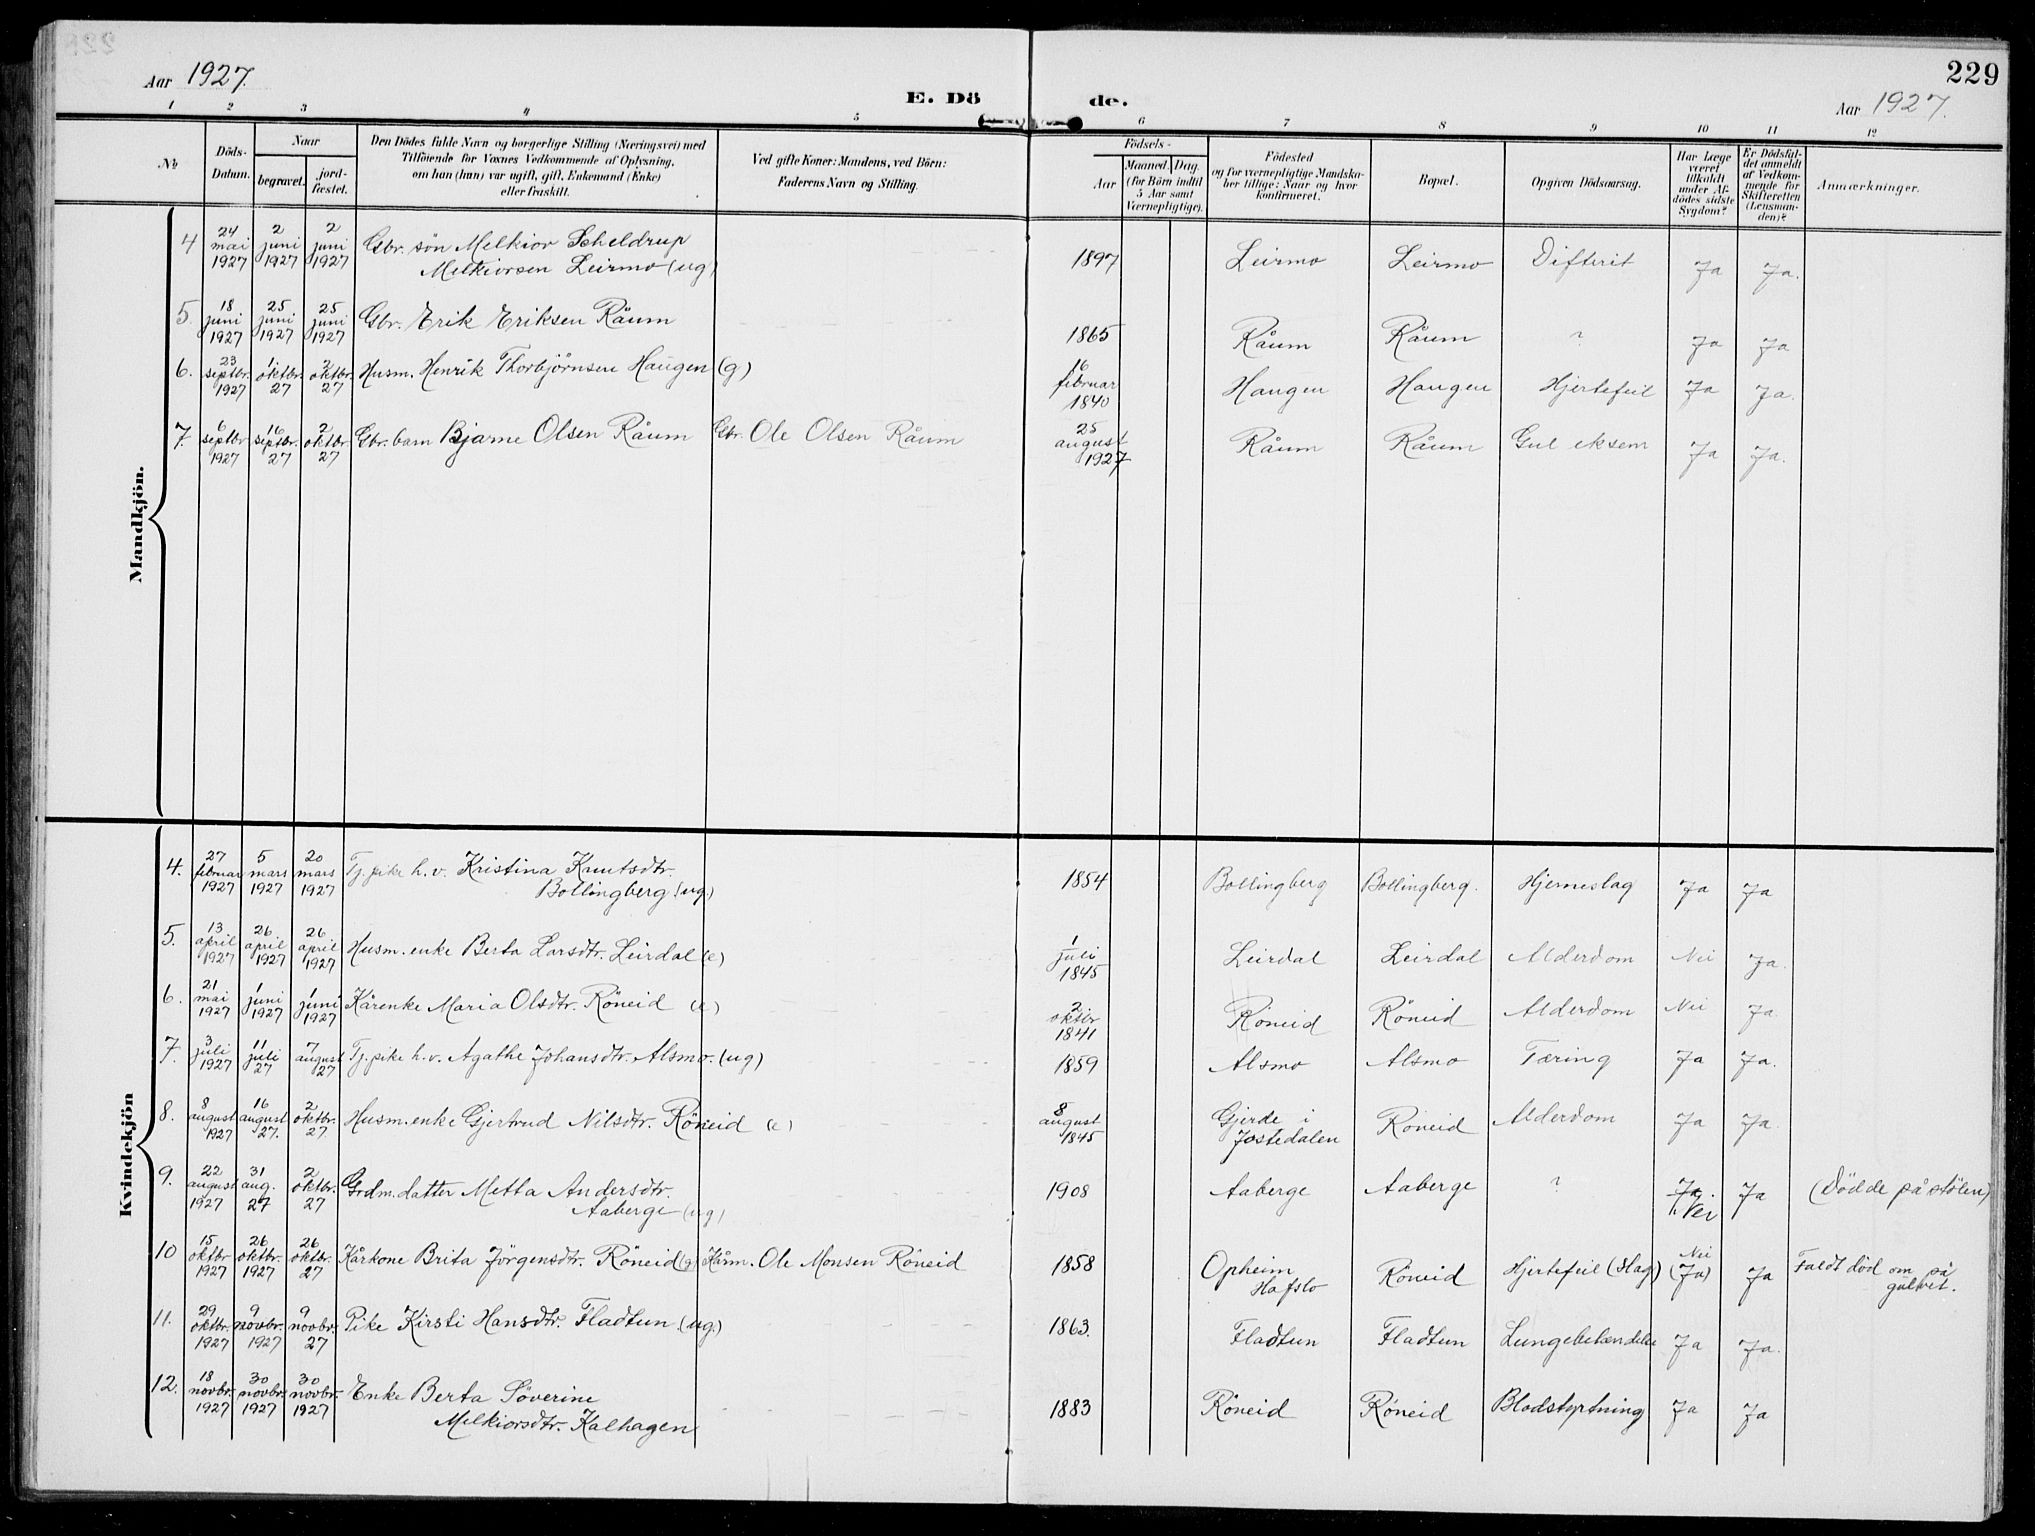 Aar 1927.
E. Dö de.
229
Aar 1927.
1 2 3 4 5 6 7 8 9 10 11 12
№
Döds-
Datum.
Naar
begravet.
jord-
fæstet.
Den Dödes fulde Navn og borgerlige Stilling (Næringsvei) med
Tilföiende for Voxnes Vedkommende af Oplysning,
om han (hun) var ugift, gift, Enkemand (Enke)
eller fraskilt.
Ved gifte Koner: Mandens, ved Börn:
Faderens Navn og Stilling.
Födsels-
Aar
Maaned. Dag.
(for Börn indtil
5 Aar samt
Værnepligtige).
Födested
og for værnepligtige Mandska-
ber tillige: Naar og hvor
konfirmeret.
Bopæl.
Opgiven Dödsaarsag.
Har Læge
været
tilkaldt
under Af-
dödes sidste
Sygdom?
Er Dödsfal-
det anmeldt
af Vedkom-
mende for
Skifteretten
(Lensman-
den)?
Anmærkninger.
Mandkjön.
4 24 mai 1927 2 juni 1927 2 juni 1927 Gbr. sön Melkior Scheldrup
Melkiorsen Leirmo (ug) 1897 Leirmo Leirmo Difterit Ja Ja.
5 18 juni 1927 25 juni 1927 25 juni 1927 Gbr. Erik Eriksen Råum 1865 Råum Råum ? Ja Ja
6. 23 septbr. 1927 1 oktbr. 27 2 oktbr. 27 Husm. Henrik Thorbjörnsen Haugen (g) 16 februar 1840 Haugen Haugen Hjertefeil Ja Ja.
7 6 septbr 1927 16 septbr. 27 2 oktbr. 27 Gbr. barn Bjarne Olsen Råum Gbr. Ole Olsen Råum 25 august 1927 Råum Råum Gul eksem Ja Ja.
Kvindekjön
4. 27 februar 1927 5 mars 1927 20 mars 1927 Tj. pike h. v. Kristina Knutsdtr.
Bollingberg (ug.) 1854 Bollingberg Bollingberg. Hjerneslag Ja Ja
5. 13 april 1927 26 april 1927 26 april 1927 Husm. enke Berta Larsdtr. Leirdal (e) 1 juli 1845 Leirdal Leirdal Alderdom Nei Ja.
6. 21 mai 1927 1 juni 1927 1 juni 1927 Kårenke Maria Olsdtr. Röneid (e) 2 oktbr 1841 Röneid Röneid Alderdom Nei Ja
7. 3 juli 1927 11 juli 27 7 august 27 Tj. pike h. v. Agathe Johansdtr. Alsmo. (ug) 1859 Alsmo Alsmo Tæring Ja Ja.
8. 8 august 1927 16 august 27. 2 oktbr. 27 Husm. enke Gjertrud Nilsdtr. Röneid (e) 8 august 1845 Gjerde i
Jostedalen Röneid Alderdom Ja Ja.
9. 22 august 1927 31 aug. 27 2 oktbr. 27 Grdm. datter Metta Andersdtr.
Aaberge (ug) 1908 Aaberge Aaberge ? Ja.
Nei Ja (Dödde på stölen)
10 15 oktbr 1927 26 oktbr. 1927 26 oktbr. 27 Kårkone Brita Jörgensdtr. Röneid (g) Kårm. Ole Monsen Röneid 1858 Opheim
Hafslo Röneid Hjertefeil (slag) Nei
(Ja) Ja Faldt död om på
gulvet.
11. 29 oktbr. 1927 9 novbr. 1927 9 novbr. 27 Pike Kirsti Hansdtr. Fladtun (ug.) 1863. Fladtun Fladtun Lungebetændelse Ja Ja.
12. 18 novbr. 1927 30 novbr. 1927 30 novbr. 1927 Enke Berta Söverine
Melkiorsdtr. Kalhagen 1883 Röneid Röneid Blodstyrtning Ja Ja